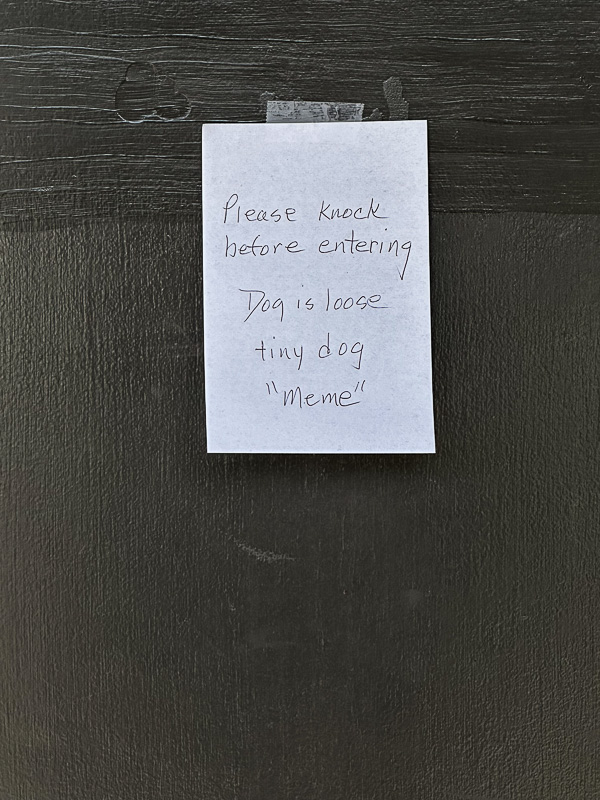 Please knock
before entering
Dog is loose
tiny dog
"Meme"